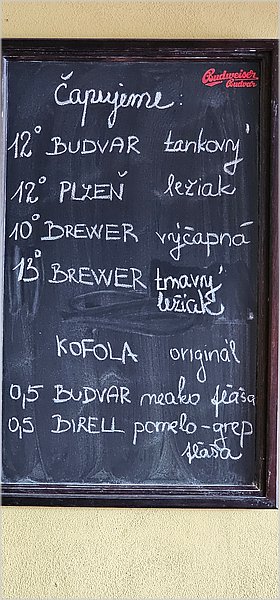 Budweiser
Budvar
Čapujeme:
12° BUDVAR tankový
12° PLZEŇ ležiak
10° BREWER výčapná
13° BREWER tmavý
ležiak
KOFOLA originál
0,5 BUDVAR nealko fľaša
0,5 BIRELL pomelo-grep
fľaša